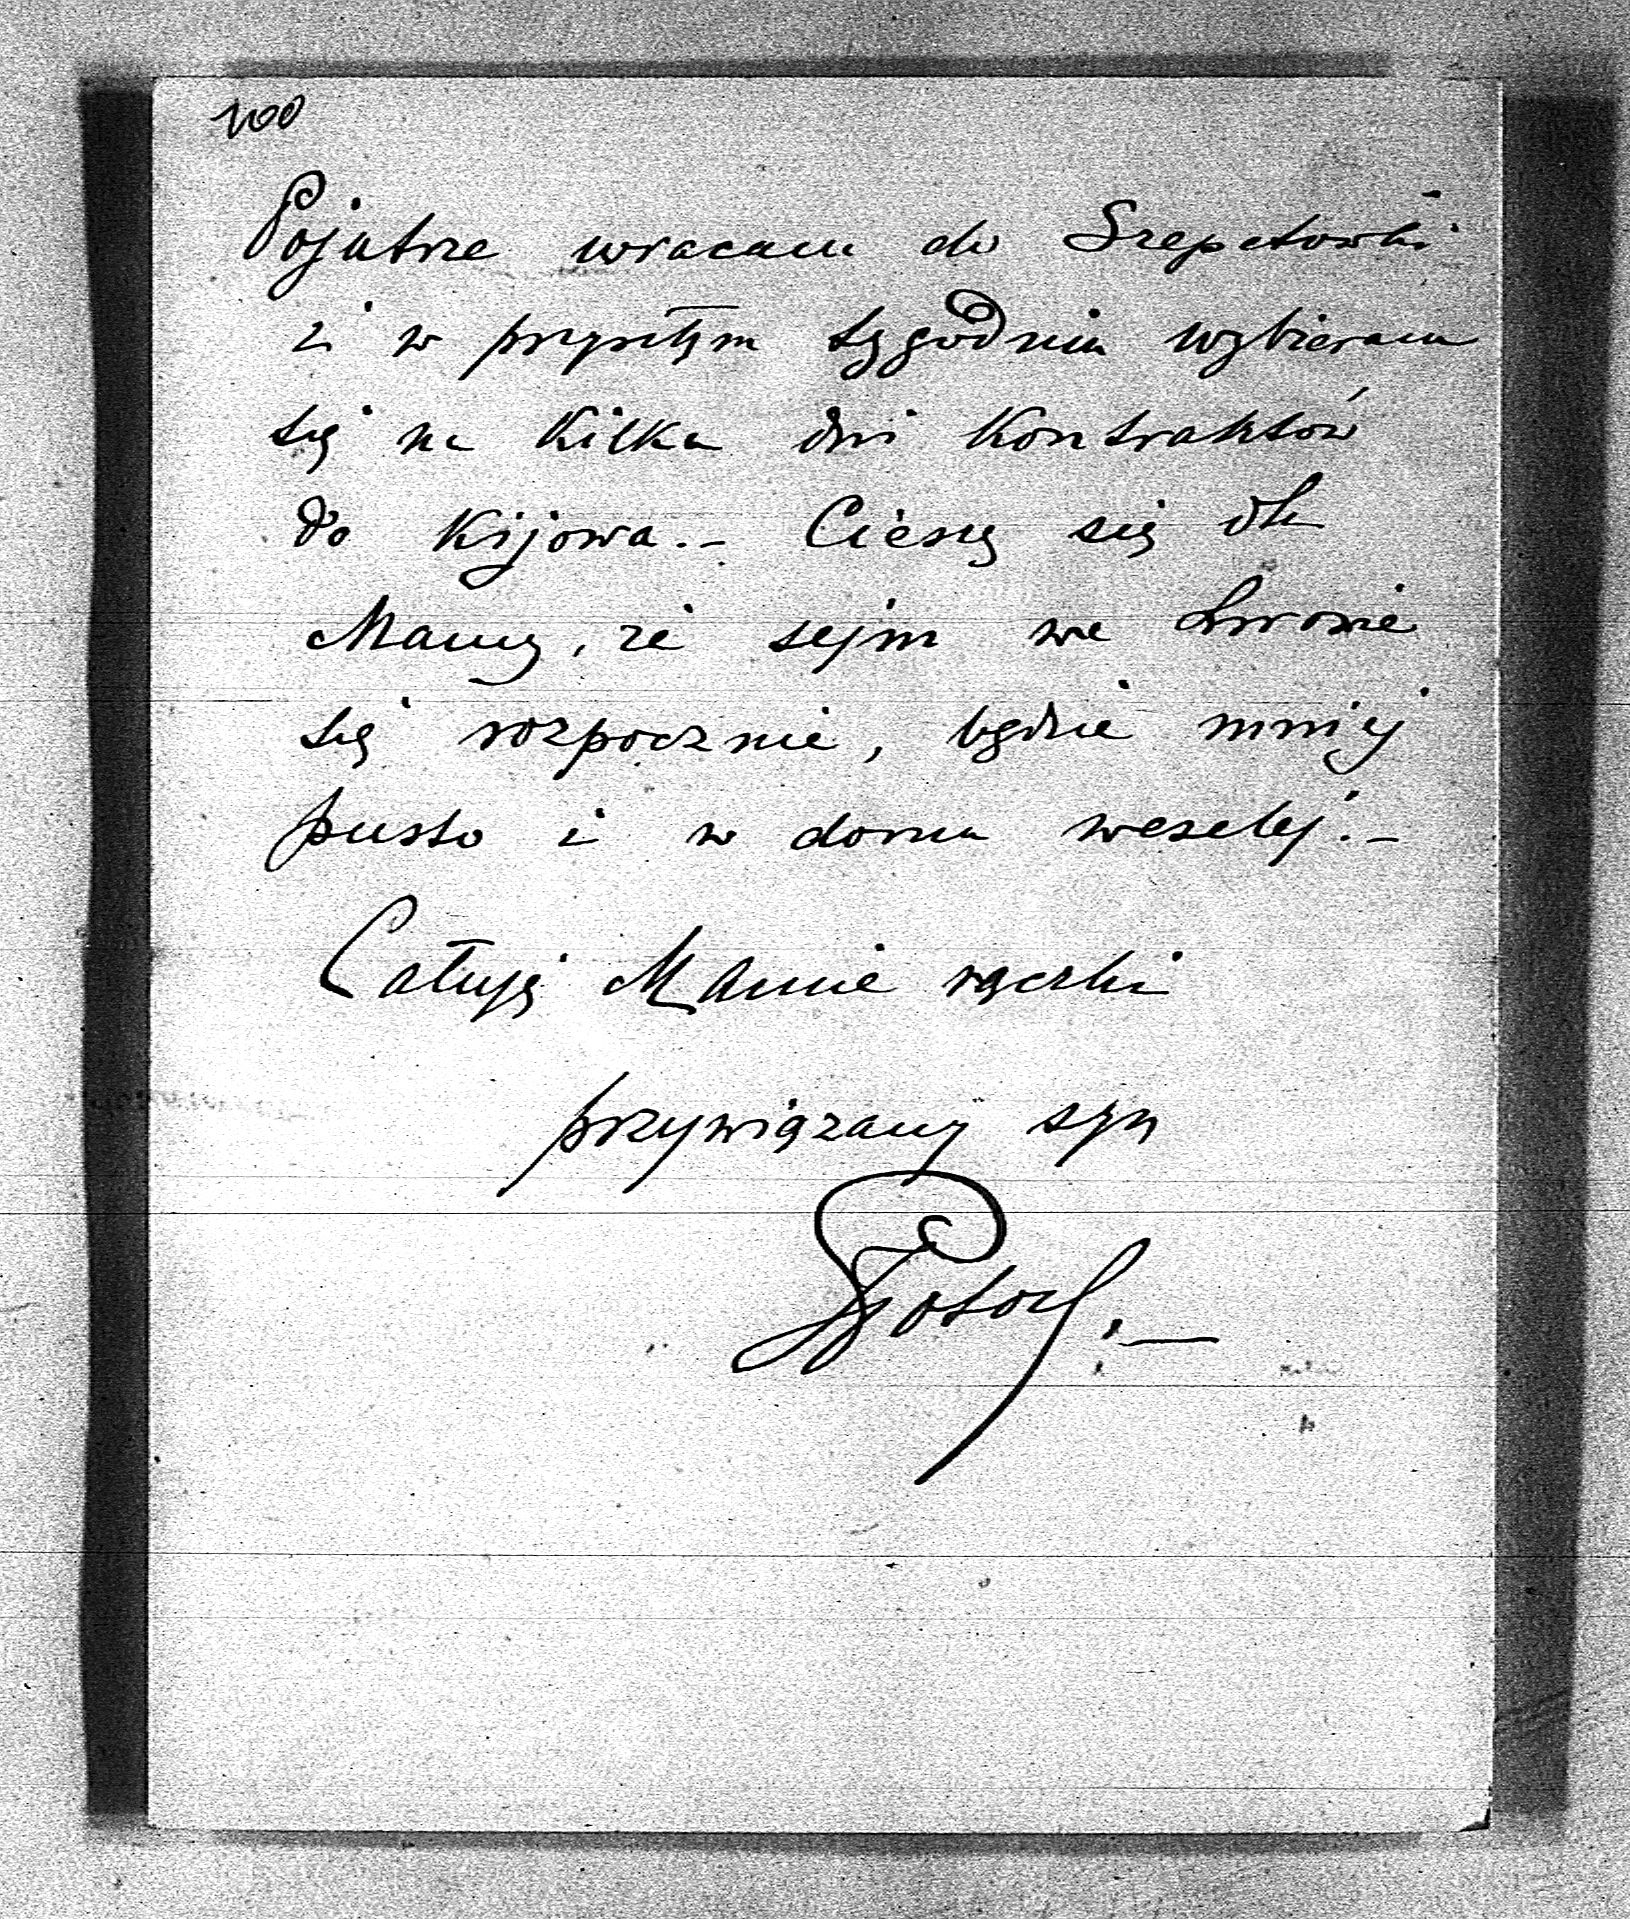 100
Pojutrze wracam do Szepetówki
i w przyszłym tygodniu wybieram
się na kilka dni Kontraktów
do Kijowa. – Cieszę się dla
Mamy, że sejm we Lwowie
się rozpocznie, będzie mniej
pusto i w domu weselej. –
Całuję Mamie rączki
przywiązany syn